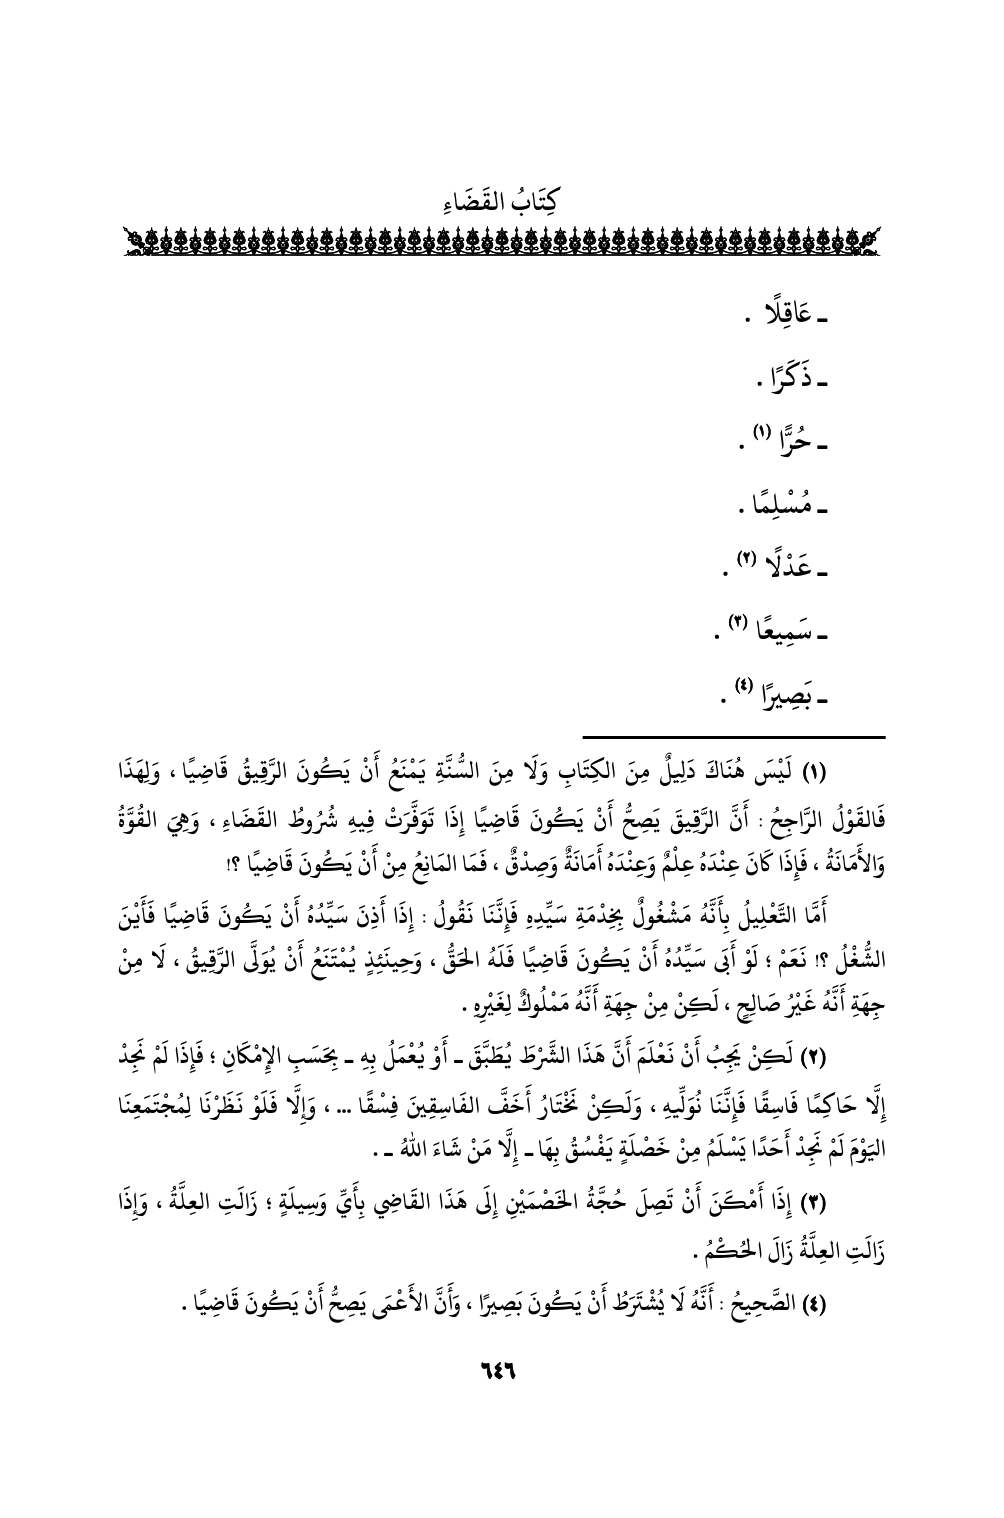 كِتَابُ القَضَاءِ
ـ عَاقِلًا .
ـ ذَكَرًا .
ـ حُرًّا (١) .
ـ مُسْلِمًا .
ـ عَدْلًا (٢) .
ـ سَمِيعًا (٣) .
ـ بَصِيرًا (٤) .
(١) لَيْسَ هُنَاكَ دَلِيلٌ مِنَ الكِتَابِ وَلَا مِنَ السُّنَّةِ يَمْنَعُ أَنْ يَكُونَ الرَّقِيقُ قَاضِيًا ، وَلِهَذَا
فَالقَوْلُ الرَّاجِحُ : أَنَّ الرَّقِيقَ يَصِحُّ أَنْ يَكُونَ قَاضِيًا إِذَا تَوَفَّرَتْ فِيهِ شُرُوطُ القَضَاءِ ، وَهِيَ القُوَّةُ
وَالأَمَانَةُ ، فَإِذَا كَانَ عِنْدَهُ عِلْمٌ وَعِنْدَهُ أَمَانَةٌ وَصِدْقٌ ، فَمَا المَانِعُ مِنْ أَنْ يَكُونَ قَاضِيًا ؟!
أَمَّا التَّعْلِيلُ بِأَنَّهُ مَشْغُولٌ بِخِدْمَةِ سَيِّدِهِ فَإِنَّنَا نَقُولُ : إِذَا أَذِنَ سَيِّدُهُ أَنْ يَكُونَ قَاضِيًا فَأَيْنَ
الشُّغْلُ ؟! نَعَمْ ؛ لَوْ أَبَى سَيِّدُهُ أَنْ يَكُونَ قَاضِيًا فَلَهُ الحَقُّ ، وَحِينَئِذٍ يُمْتَنَعُ أَنْ يُوَلَّى الرَّقِيقُ ، لَا مِنْ
جِهَةِ أَنَّهُ غَيْرُ صَالِحٍ ، لَكِنْ مِنْ جِهَةِ أَنَّهُ مَمْلُوكٌ لِغَيْرِهِ .
(٢) لَكِنْ يَجِبُ أَنْ نَعْلَمَ أَنَّ هَذَا الشَّرْطَ يُطَبَّقَ ـ أَوْ يُعْمَلُ بِهِ ـ بِحَسَبِ الإِمْكَانِ ؛ فَإِذَا لَمْ نَجِدْ
إِلَّا حَاكِمًا فَاسِقًا فَإِنَّنَا نُوَلِّيهِ ، وَلَكِنْ نَخْتَارُ أَخَفَّ الفَاسِقِينَ فِسْقًا ... ، وَإِلَّا فَلَوْ نَظَرْنَا لِمُجْتَمَعِنَا
اليَوْمَ لَمْ نَجِدْ أَحَدًا يَسْلَمُ مِنْ خَصْلَةٍ يَفْسُقُ بِهَا ـ إِلَّا مَنْ شَاءَ اللهُ ـ .
(٣) إِذَا أَمْكَنَ أَنْ تَصِلَ حُجَّةُ الخَصْمَيْنِ إِلَى هَذَا القَاضِي بِأَيِّ وَسِيلَةٍ ؛ زَالَتِ العِلَّةُ ، وَإِذَا
زَالَتِ العِلَّةُ زَالَ الحُكْمُ .
(٤) الصَّحِيحُ : أَنَّهُ لَا يُشْتَرَطُ أَنْ يَكُونَ بَصِيرًا ، وَأَنَّ الأَعْمَى يَصِحُّ أَنْ يَكُونَ قَاضِيًا .
٦٤٦